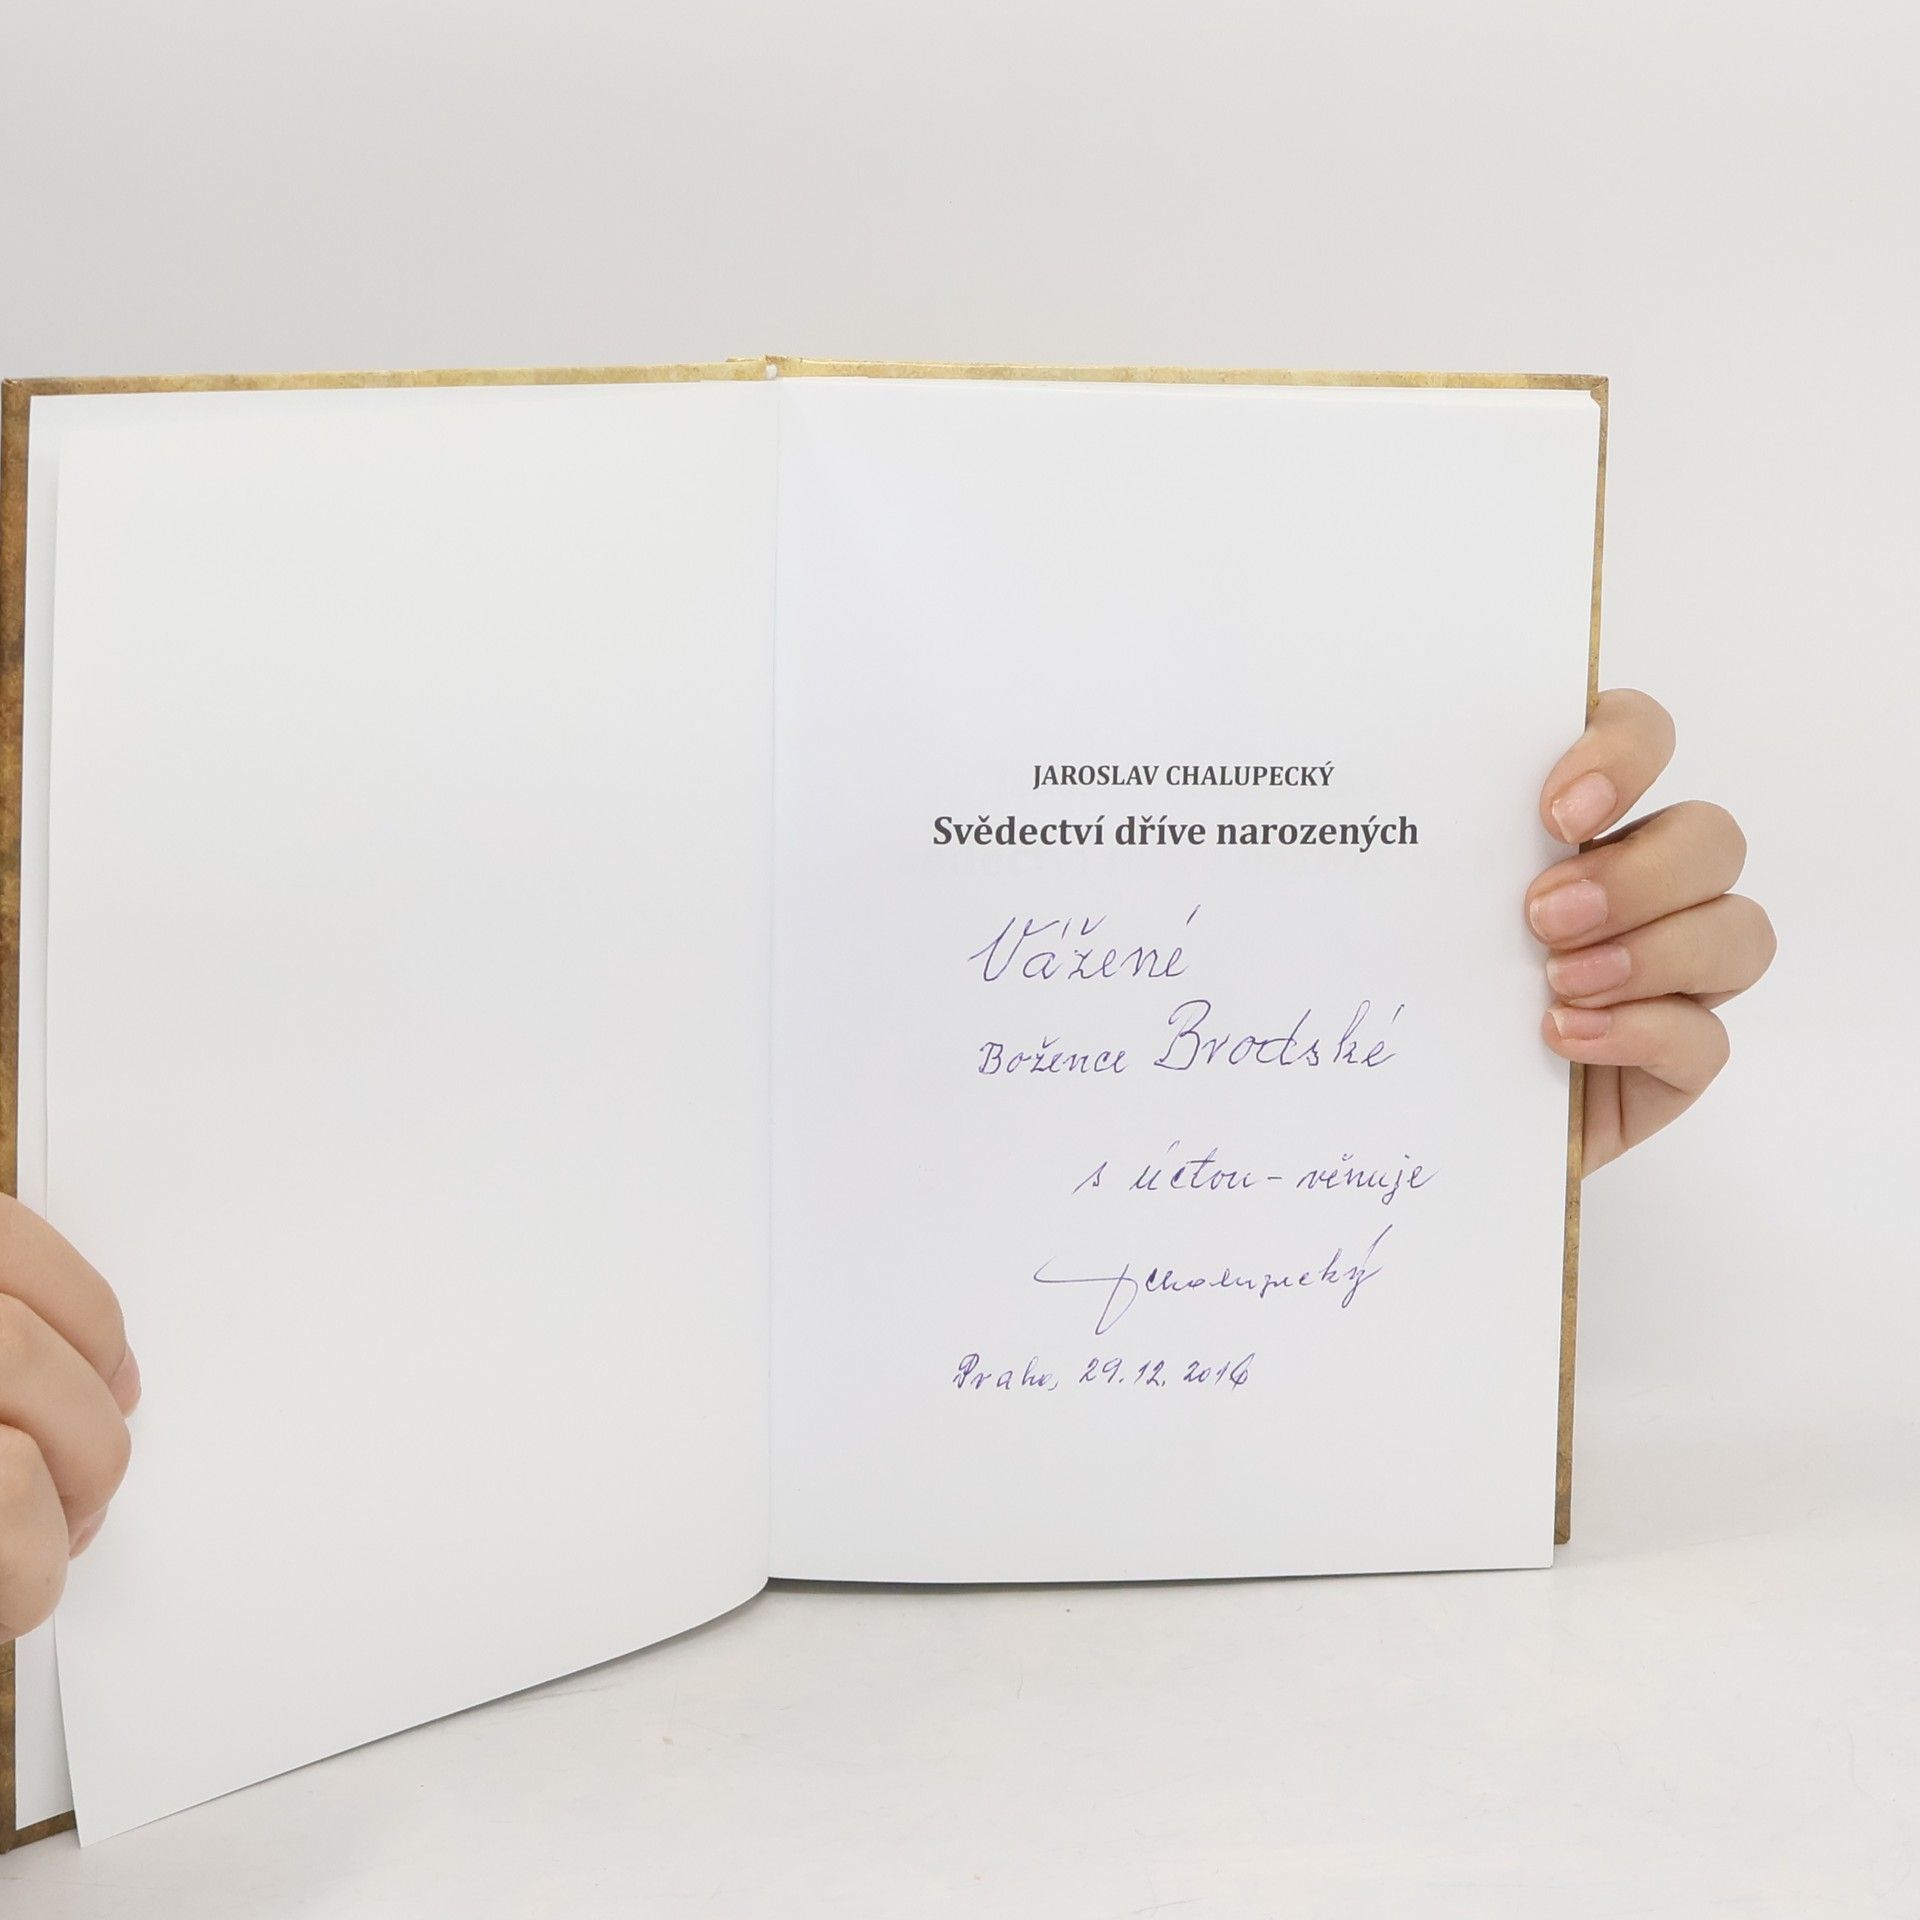 JAROSLAV CHALUPECKÝ
Svědectví dříve narozených
Vážené
Božence Brodské
s úctou - věnuje
JChalupecký
Praha, 29.12. 2016